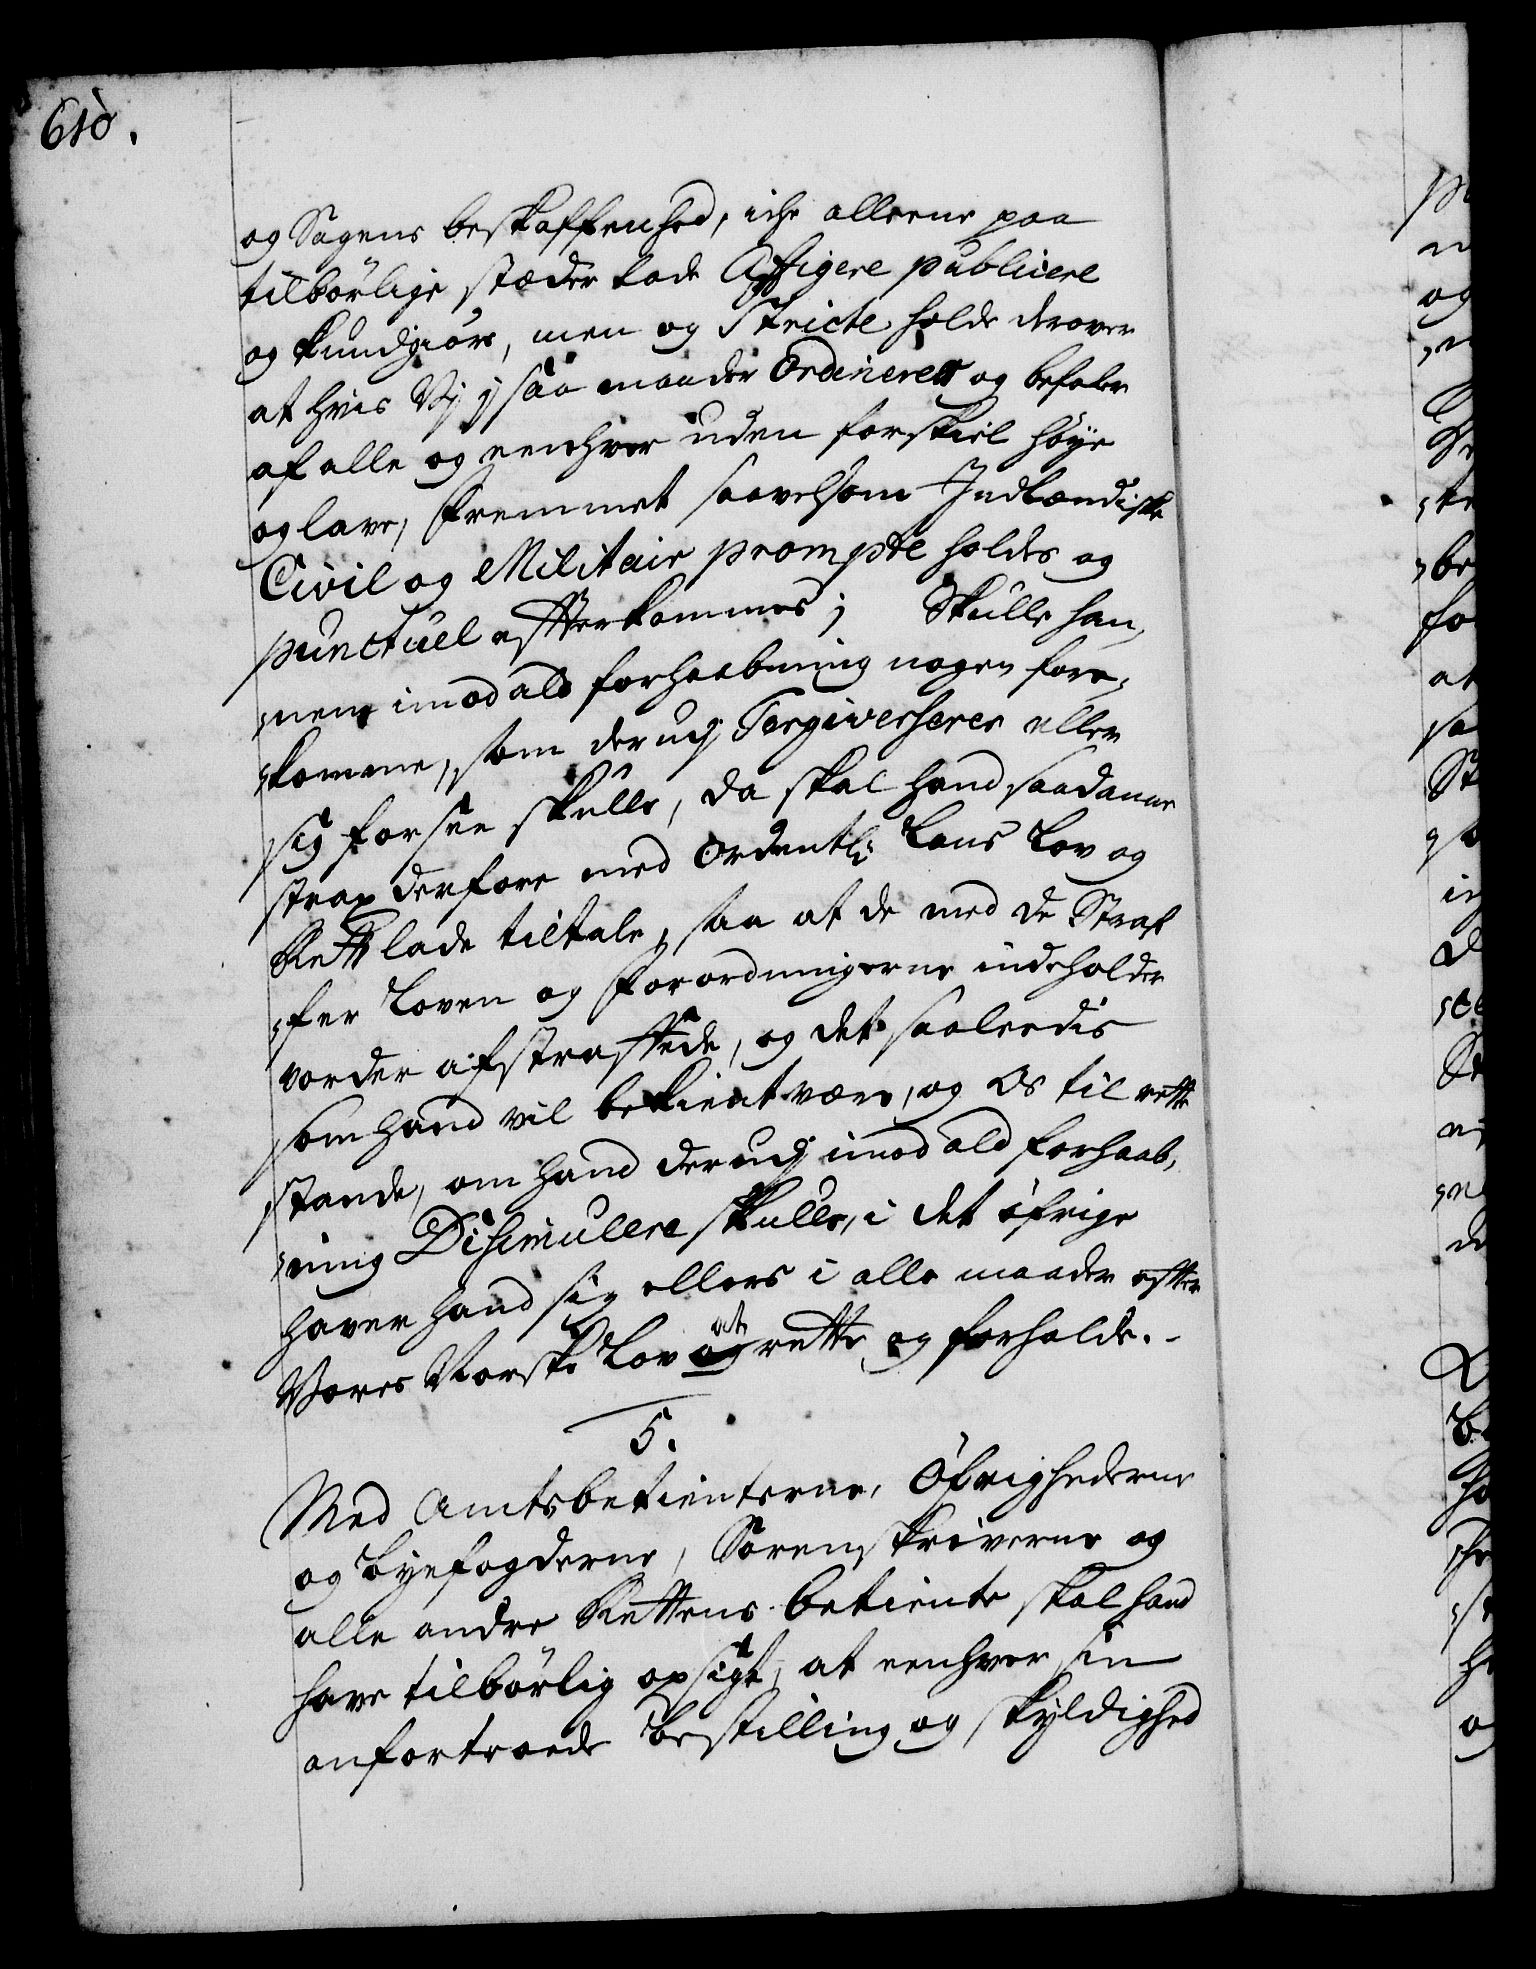 610.
og Sagens beskaffenhed, iche alleene paa
tilbörlige stæder lade Affigere publicere
og kundgiöre, men og Stricte holde derover
at hvis Vj j saa maader Ordinerer og befaler
af alle og eenhver uden forskiel höye
og lave, fremmet saavelsom Indlændiske
Civil og Militair prompte holdes og
punctuel efterkommes; Skulle han,
nem imod ald forhaabning nogen fore,
komme, som derudj Tergiverserer eller
sig forsee skulle, da skal hand saadanne
strax derfore med Ordentli: Lans Lov og
Rett lade tiltale, saa at de med de Straf
fer Loven og forordningerne indeholder
vorder afstraffede, og det saaledis
som hand vil bekiendt være, og Os til rette
stande, om hand derudj imod ald forhaab,
ning Disimulere skulle, i det öfrige
haver hand sig ellers i alle maader efter
Vores Norske Lov og at rette og forholde.
5.
Med Amtsbetienterne, Öfrighederne
og byefogderne, Sorenskriverne og
alle andre Rettens betiente skal hand
have tilbörlig opsigt, at eenhver sin
anfortroede bestilling og skyldighed